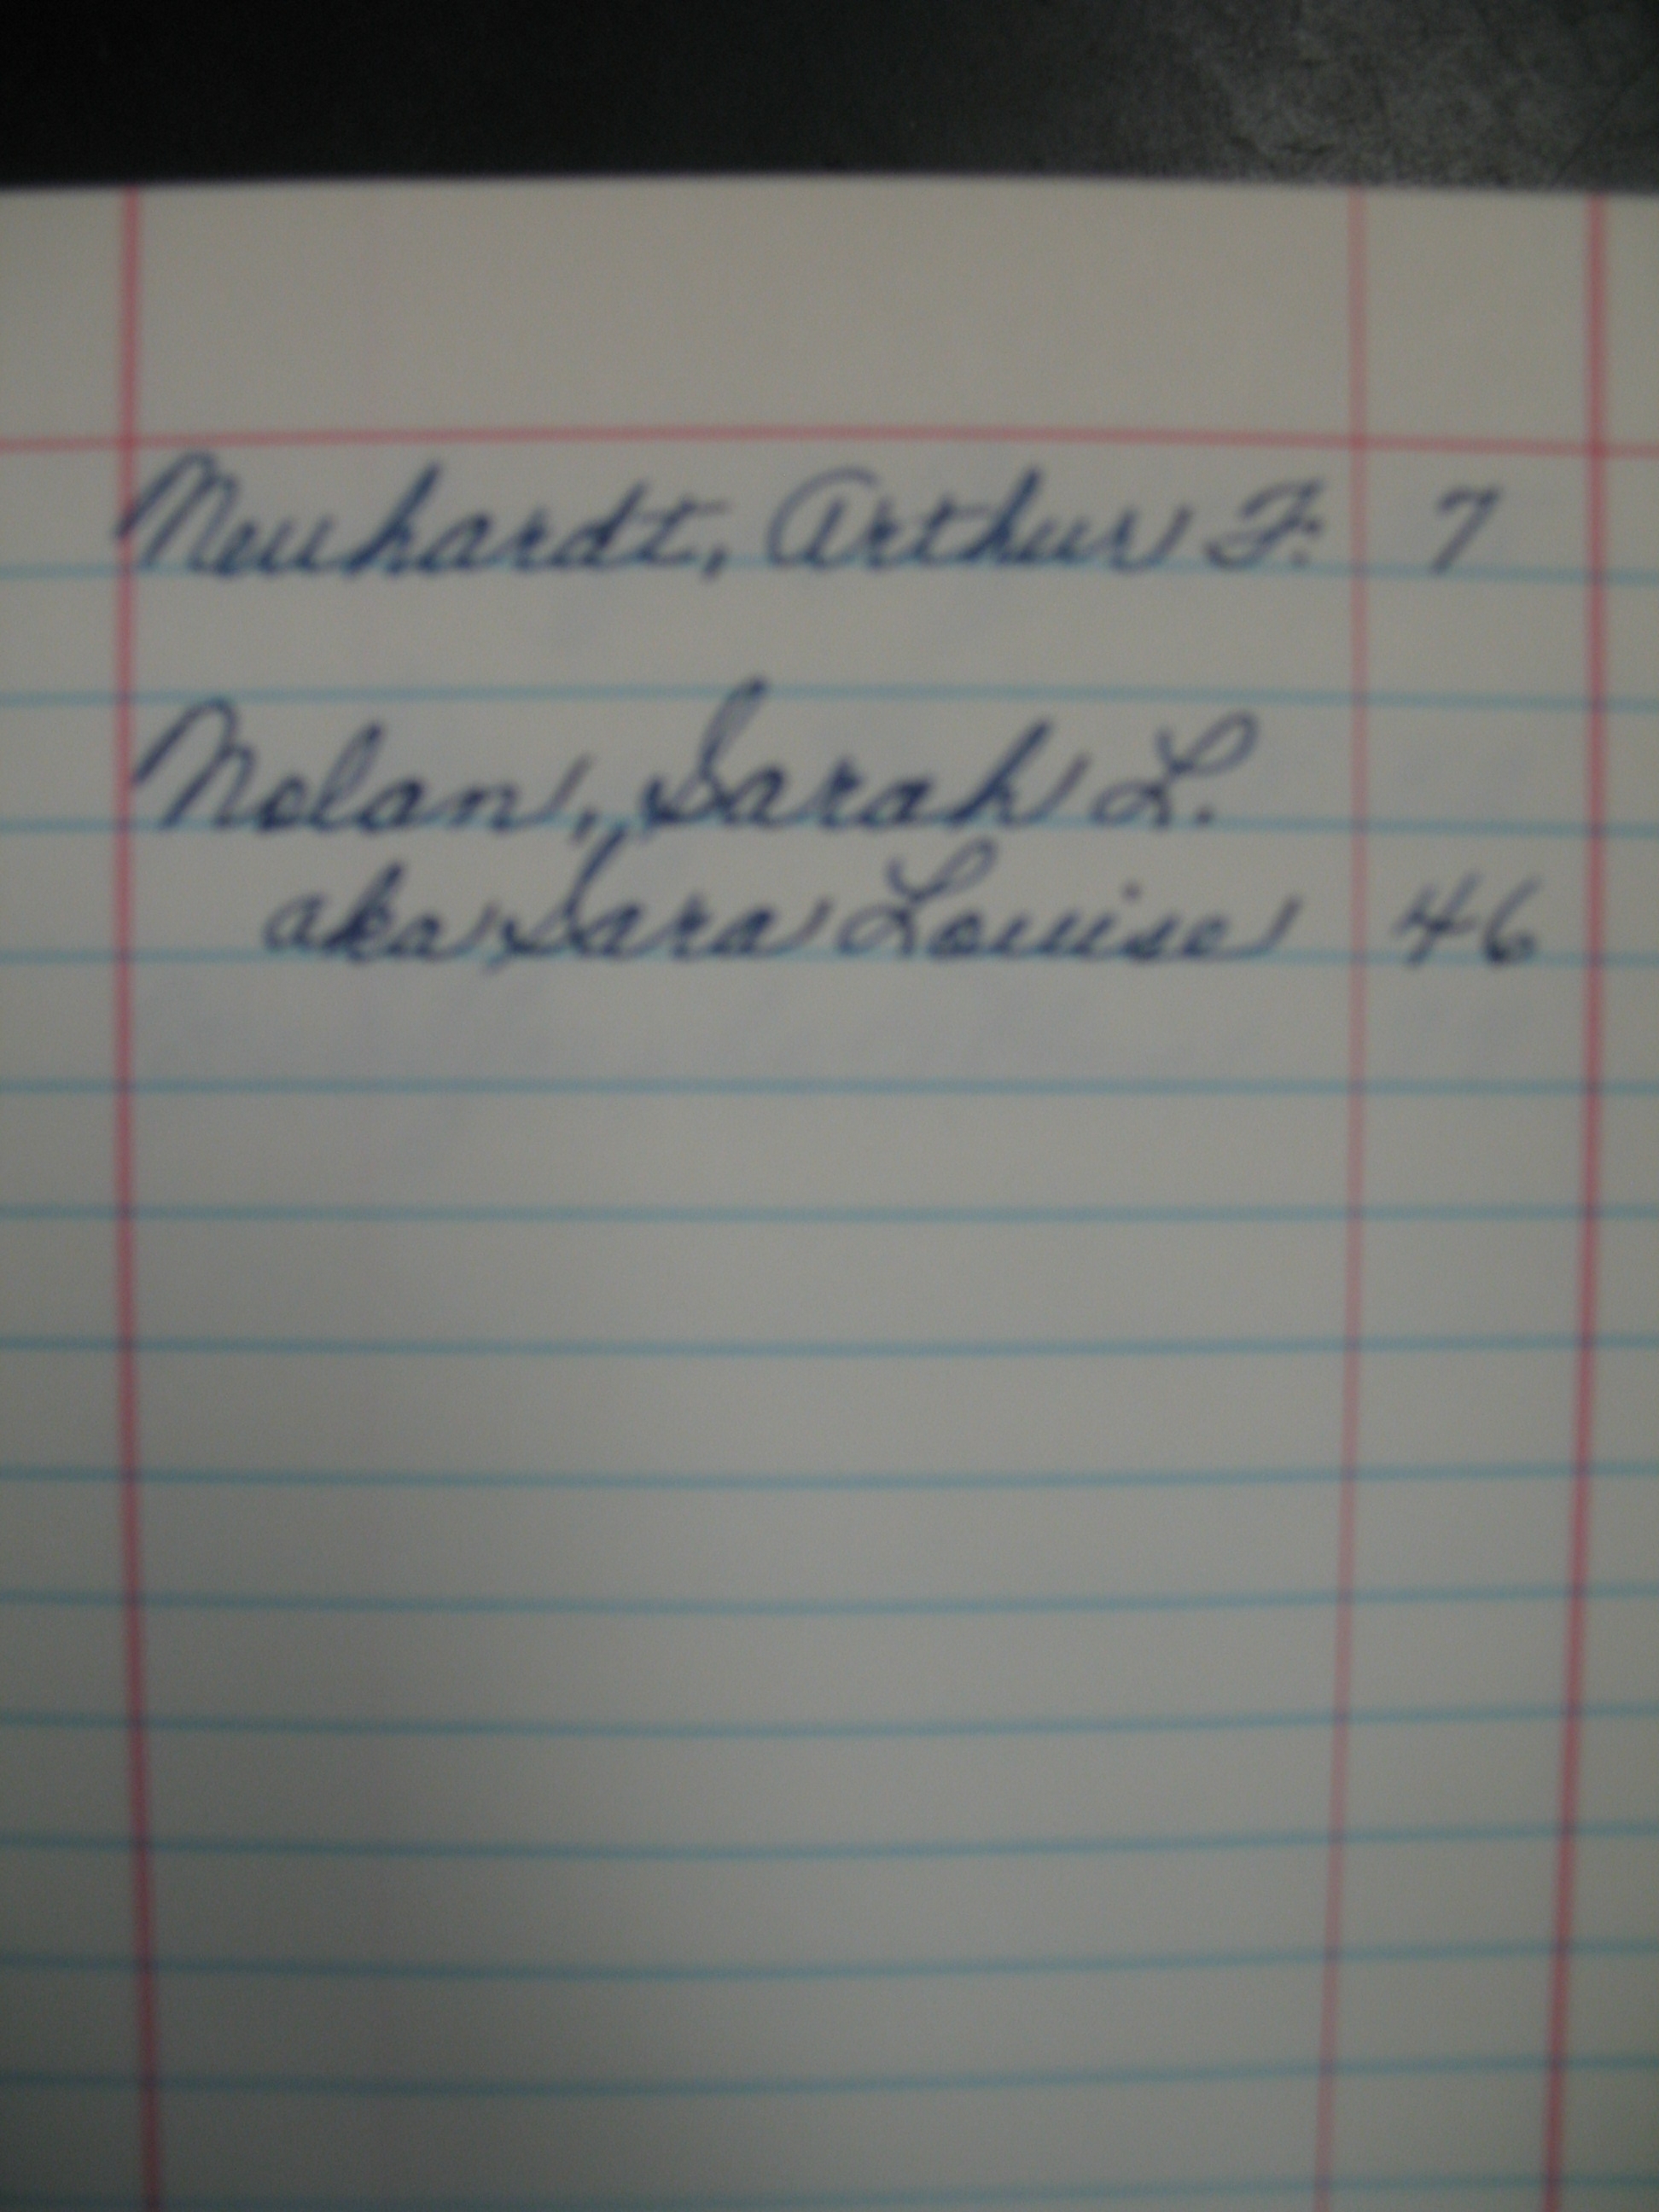 Neuhardt, Arthur F. 7
Nolan, Sarah L.
aka Sara Louise 46